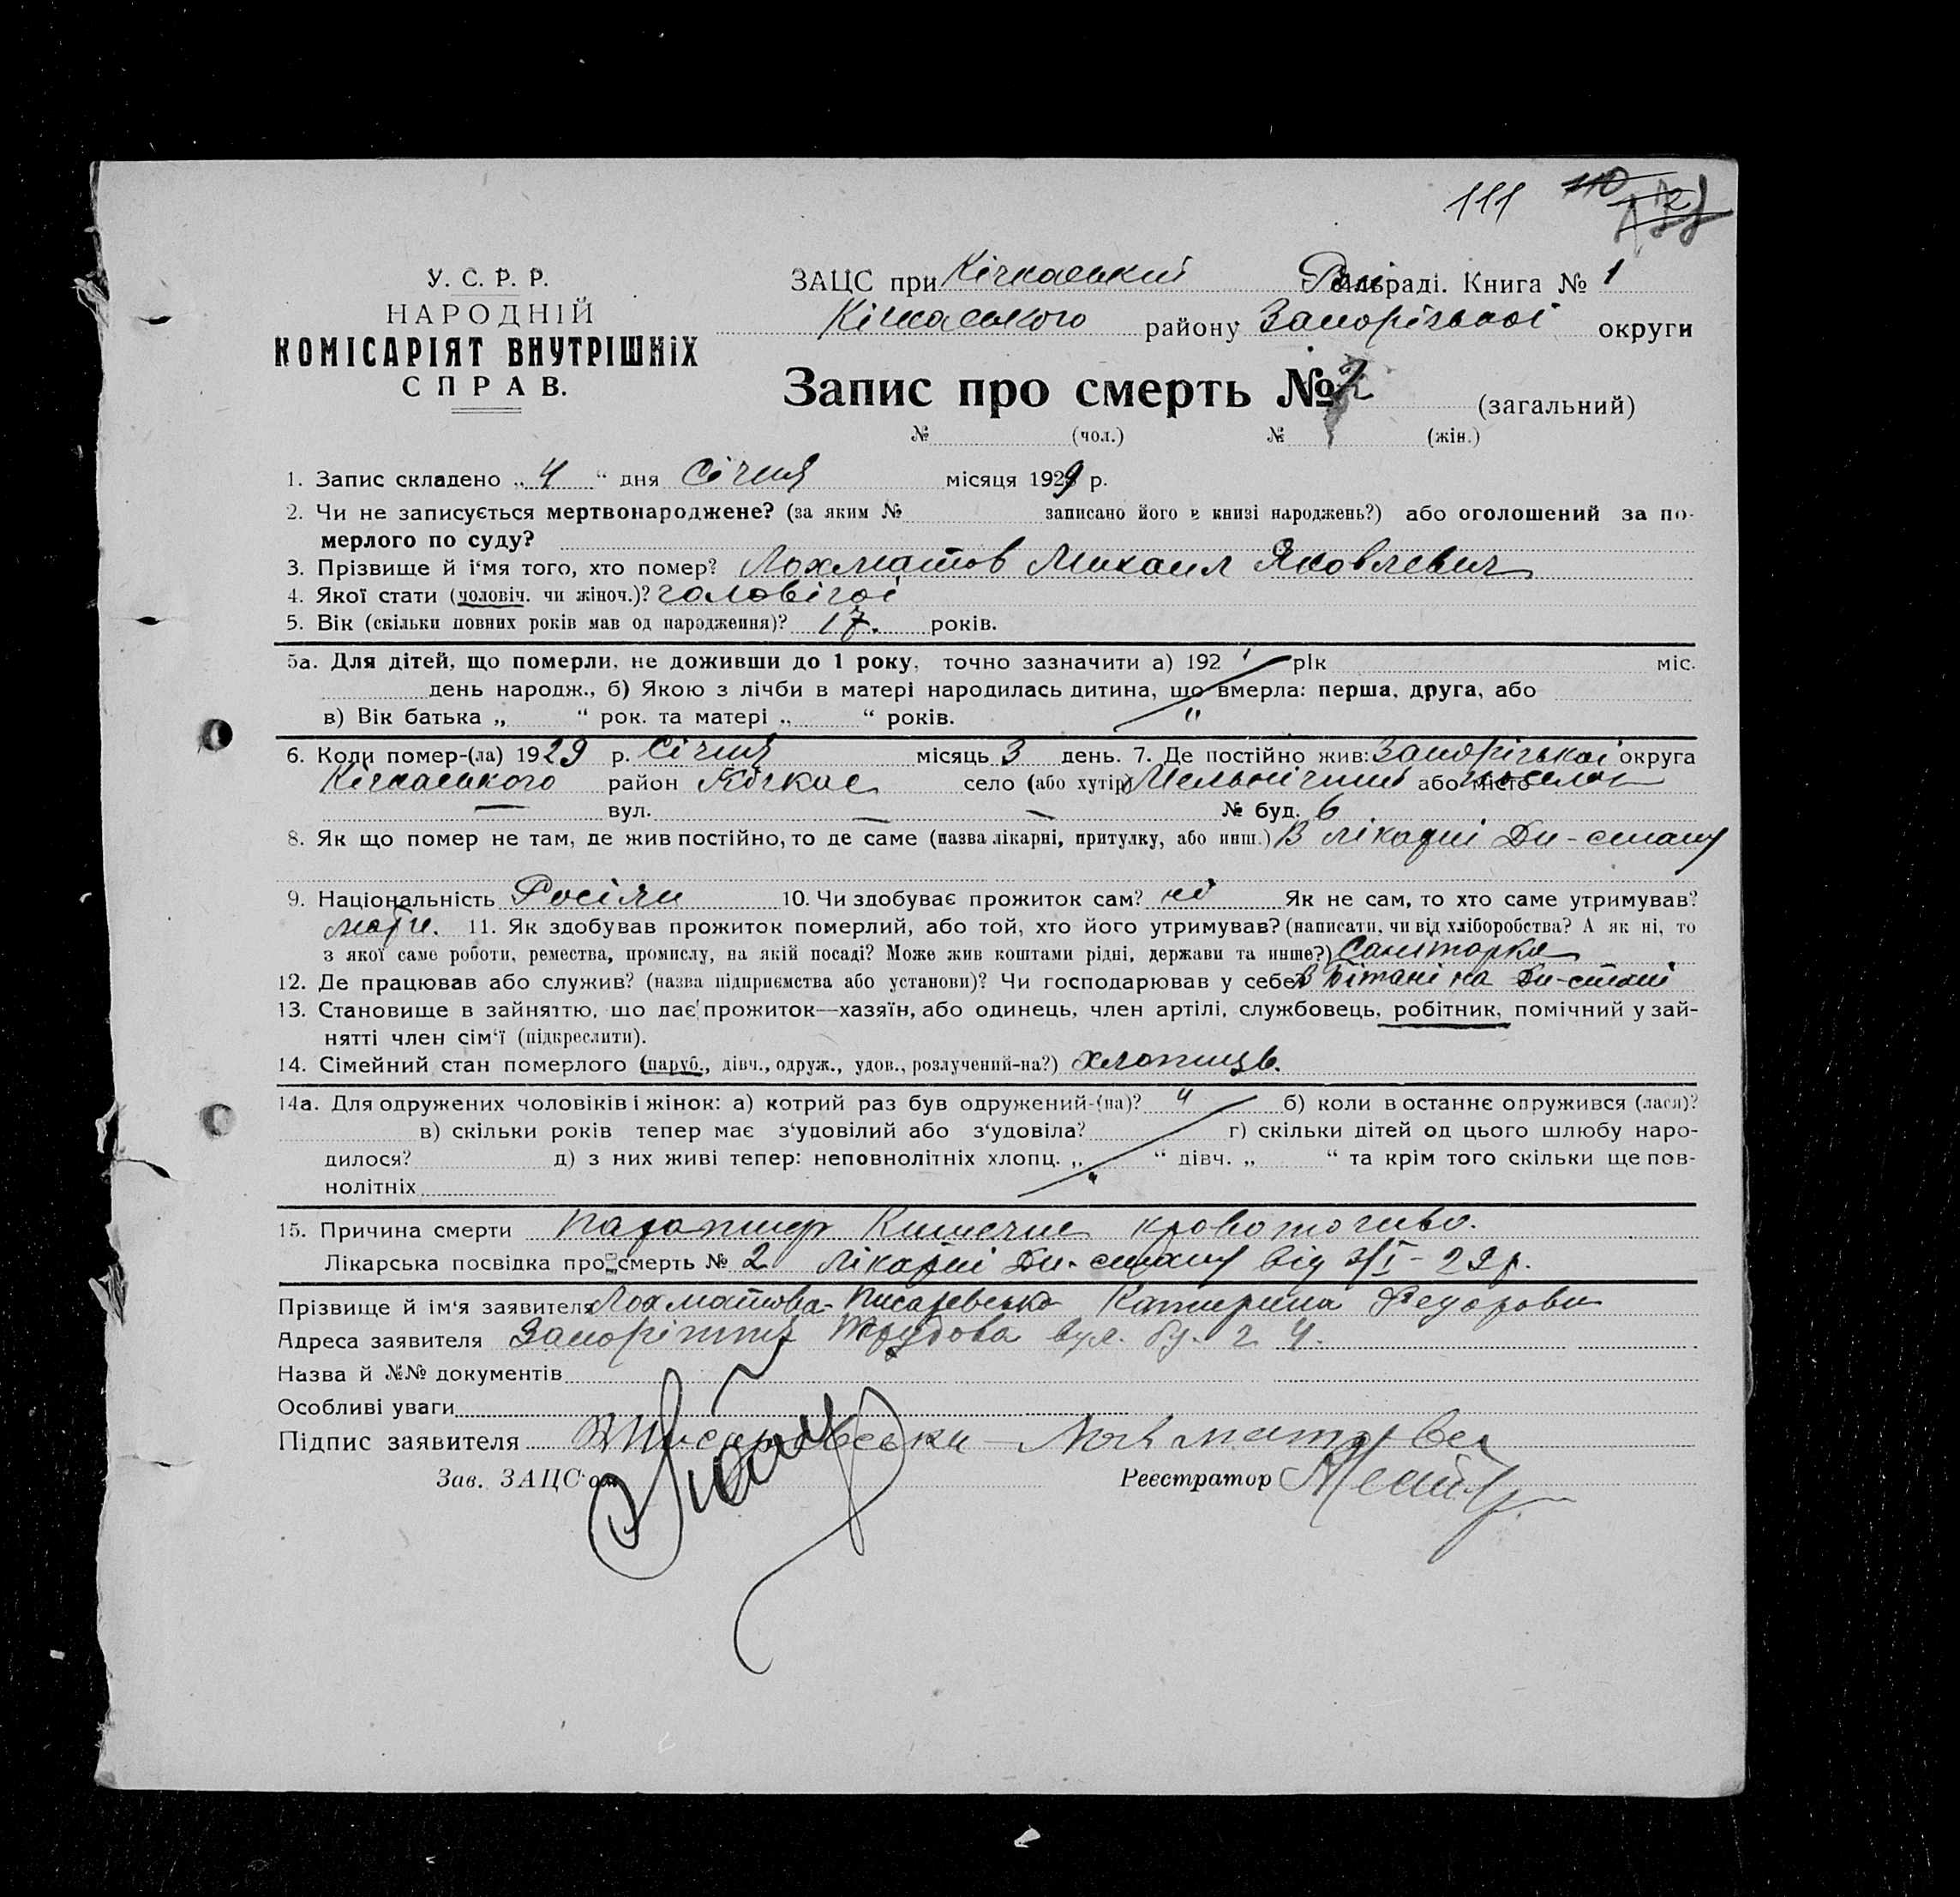 111 110
У. С. Р. Р.
НАРОДНІЙ
КОМІСАРІЯТ ВНУТРІШНІХ
СПРАВ.
ЗАЦС при Кічкаський раді. Книга № 1
Кічкаського району Запорізької округи
Запис про смерть № 2 (загальний)
№ (чол.) № (жін.)
1. Запис складено „ 4 “ дня Січня місяця 1929 р.
2. Чи не записується мертвонароджене? (за яким № записано його в книзі народжень?) або оголошений за по-
мерлого по суду?
3. Прізвище й і‘мя того, хто помер? Лохматов Михаил Яковлевич
4. Якої стати (чоловіч. чи жіноч.)? чоловічої
5. Вік (скільки повних років мав од народження)? 17. років.
5а. Для дітей, що померли, не доживши до 1 року, точно зазначити а) 192 рік міс.
день народж., б) Якою з лічби в матері народилась дитина, що вмерла: перша, друга, або
в) Вік батька „ “ рок. та матері „ “ років.
6. Коли помер-(ла) 1929 р. Січня місяць 3 день. 7. Де постійно жив: Запорізької округа
Кічкаського район Кічкас село (або хутір) або місто
вул. № буд. 6
8. Як що помер не там, де жив постійно, то де саме (назва лікарні, притулку, або инш.) В лікарні Дн-стану
9. Національність Росіян 10. Чи здобуває прожиток сам? ні Як не сам, то хто саме утримував?
мати. 11. Як здобував прожиток померлий, або той, хто його утримував? (написати, чи від хліборобства? А як ні, то
з якої саме роботи, ремества, промислу, на якій посаді? Може жив коштами рідні, держави та инше?) Санітарка
12. Де працював або служив? (назва підприємства або установи)? Чи господарював у себе? на Дн-стані
13. Становище в зайняттю, що дає прожиток—хазяїн, або одинець, член артілі, службовець, робітник, помічний у зай-
нятті член сім‘ї (підкреслити).
14. Сімейний стан померлого (паруб., дівч., одруж., удов., розлучений-на?) хлопищь.
14а. Для одружених чоловіків і жінок: а) котрий раз був одружений-(на)? б) коли в останнє одружився (лася)?
в) скільки років тепер має з‘удовілий або з‘удовіла? г) скільки дітей од цього шлюбу наро-
дилося? д) з них живі тепер: неповнолітніх хлопц. „ “ дівч. „ “ та крім того скільки ще пов-
нолітніх
15. Причина смерти Паратиф Кишечне кровоточиво.
Лікарська посвідка про смерть № 2 лікарні Дн-стану від 3/I - 29 р.
Прізвище й ім‘я заявителя Лохматова-Писаревська Катерина Федоровн
Адреса заявителя Запоріжжя Трудова вул. бу. 24.
Назва й №№ документів
Особливі уваги
Підпис заявителя Лохматова
Зав. ЗАЦС‘ом Реєстратор